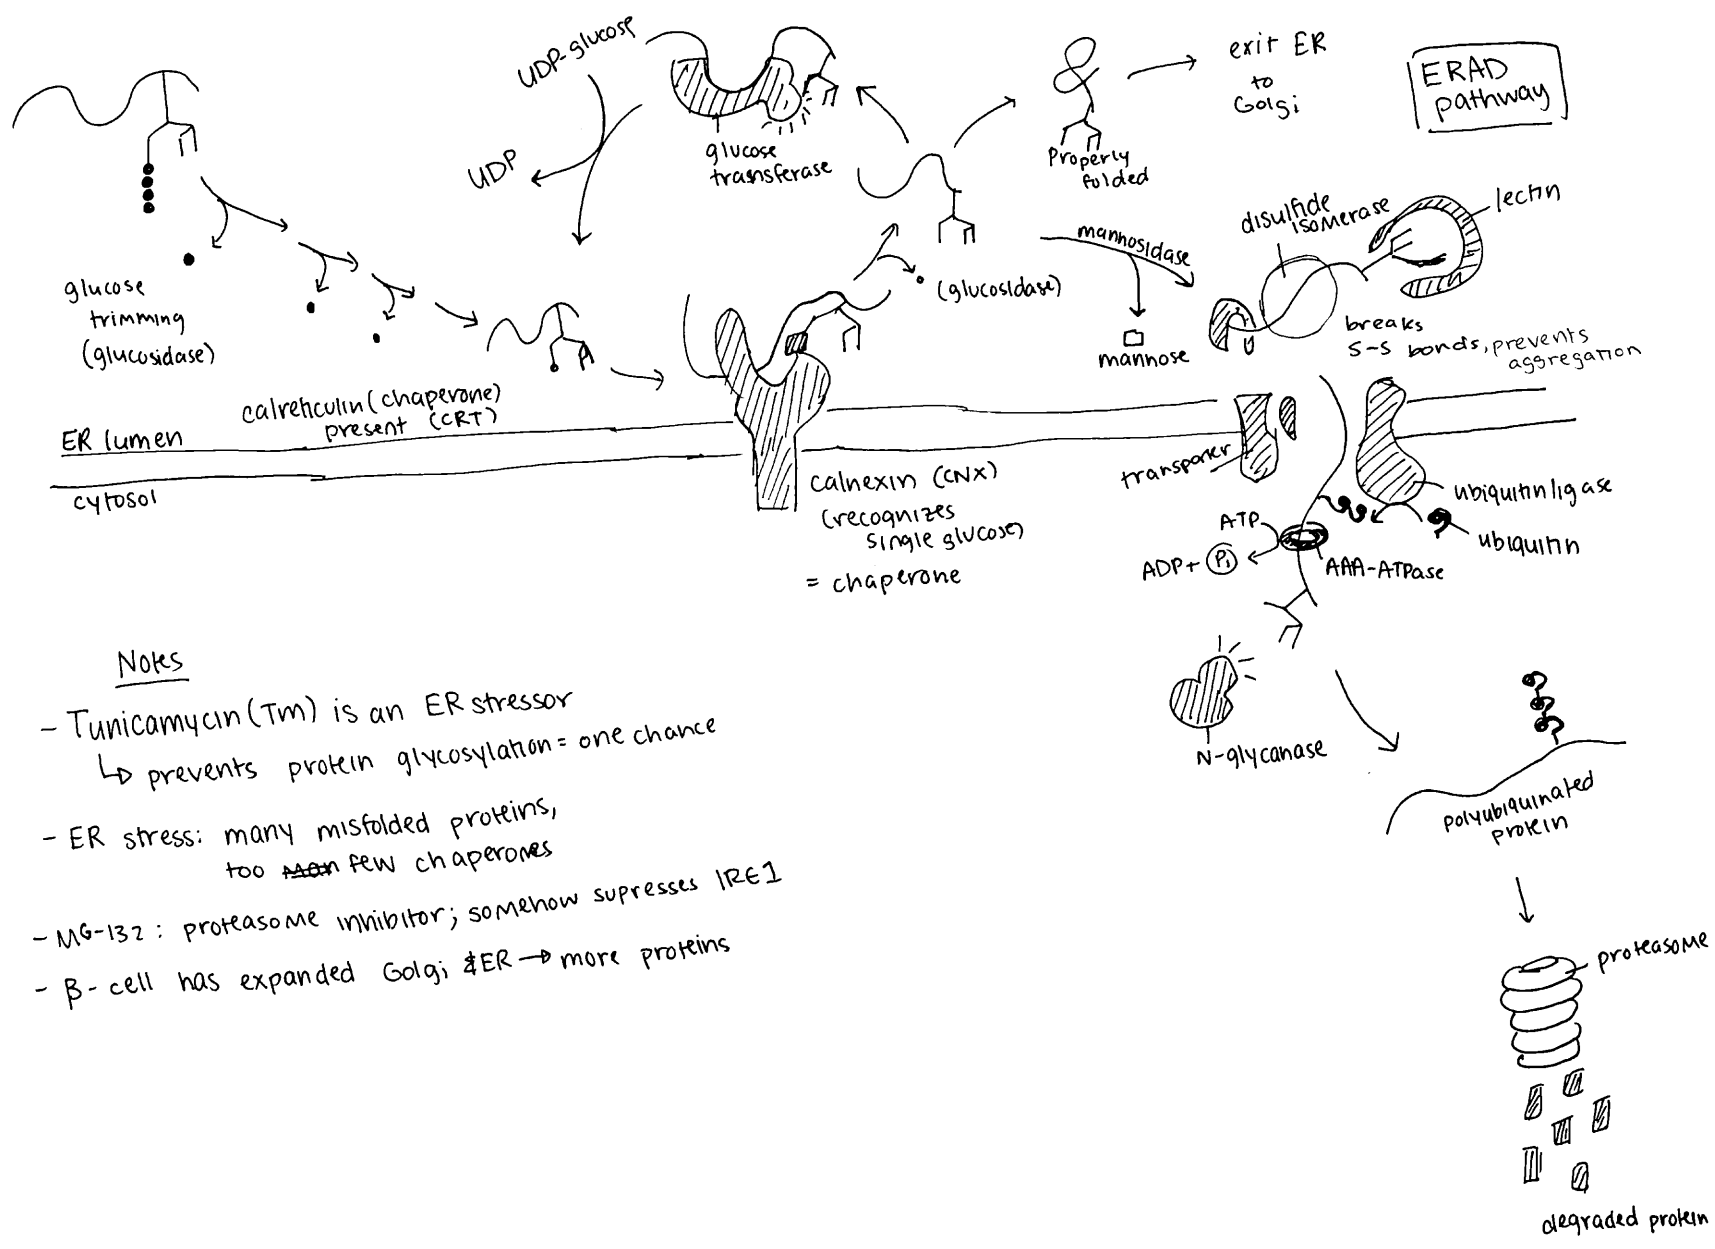 UDP-glucose
UDP
glucose
transferase
Properly
folded
exit ER
to
Golgi
ERAD
pathway
glucose
trimming
(glucosidase)
calreticulin (chaperone)
present (CRT)
(glucosidase)
mannosidase
mannose
disulfide
isomerase
lectin
breaks
S-S bonds, prevents
aggregation
ER lumen
cytosol
calnexin (CNX)
(recognizes
single glucose)
= chaperone
transporter
ubiquitin ligase
ubiquitin
ATP
ADP + Pi
AAA-ATPase
N-glycanase
polyubiquinated
protein
proteasome
degraded protein
Notes
- Tunicamycin (Tm) is an ER stressor
↳ prevents protein glycosylation = one chance
- ER stress: many misfolded proteins,
too few chaperones
- MG-132: proteasome inhibitor; somehow supresses IRE1
- β-cell has expanded Golgi & ER → more proteins